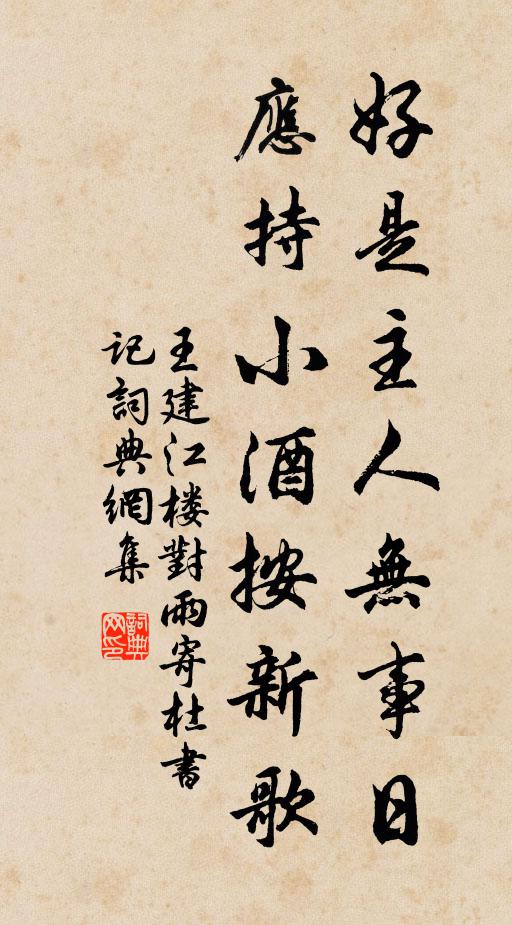 好是主人無事日
應持小酒按新歌
王建江楼對雨寄杜書
記詞典網集
詞典网印